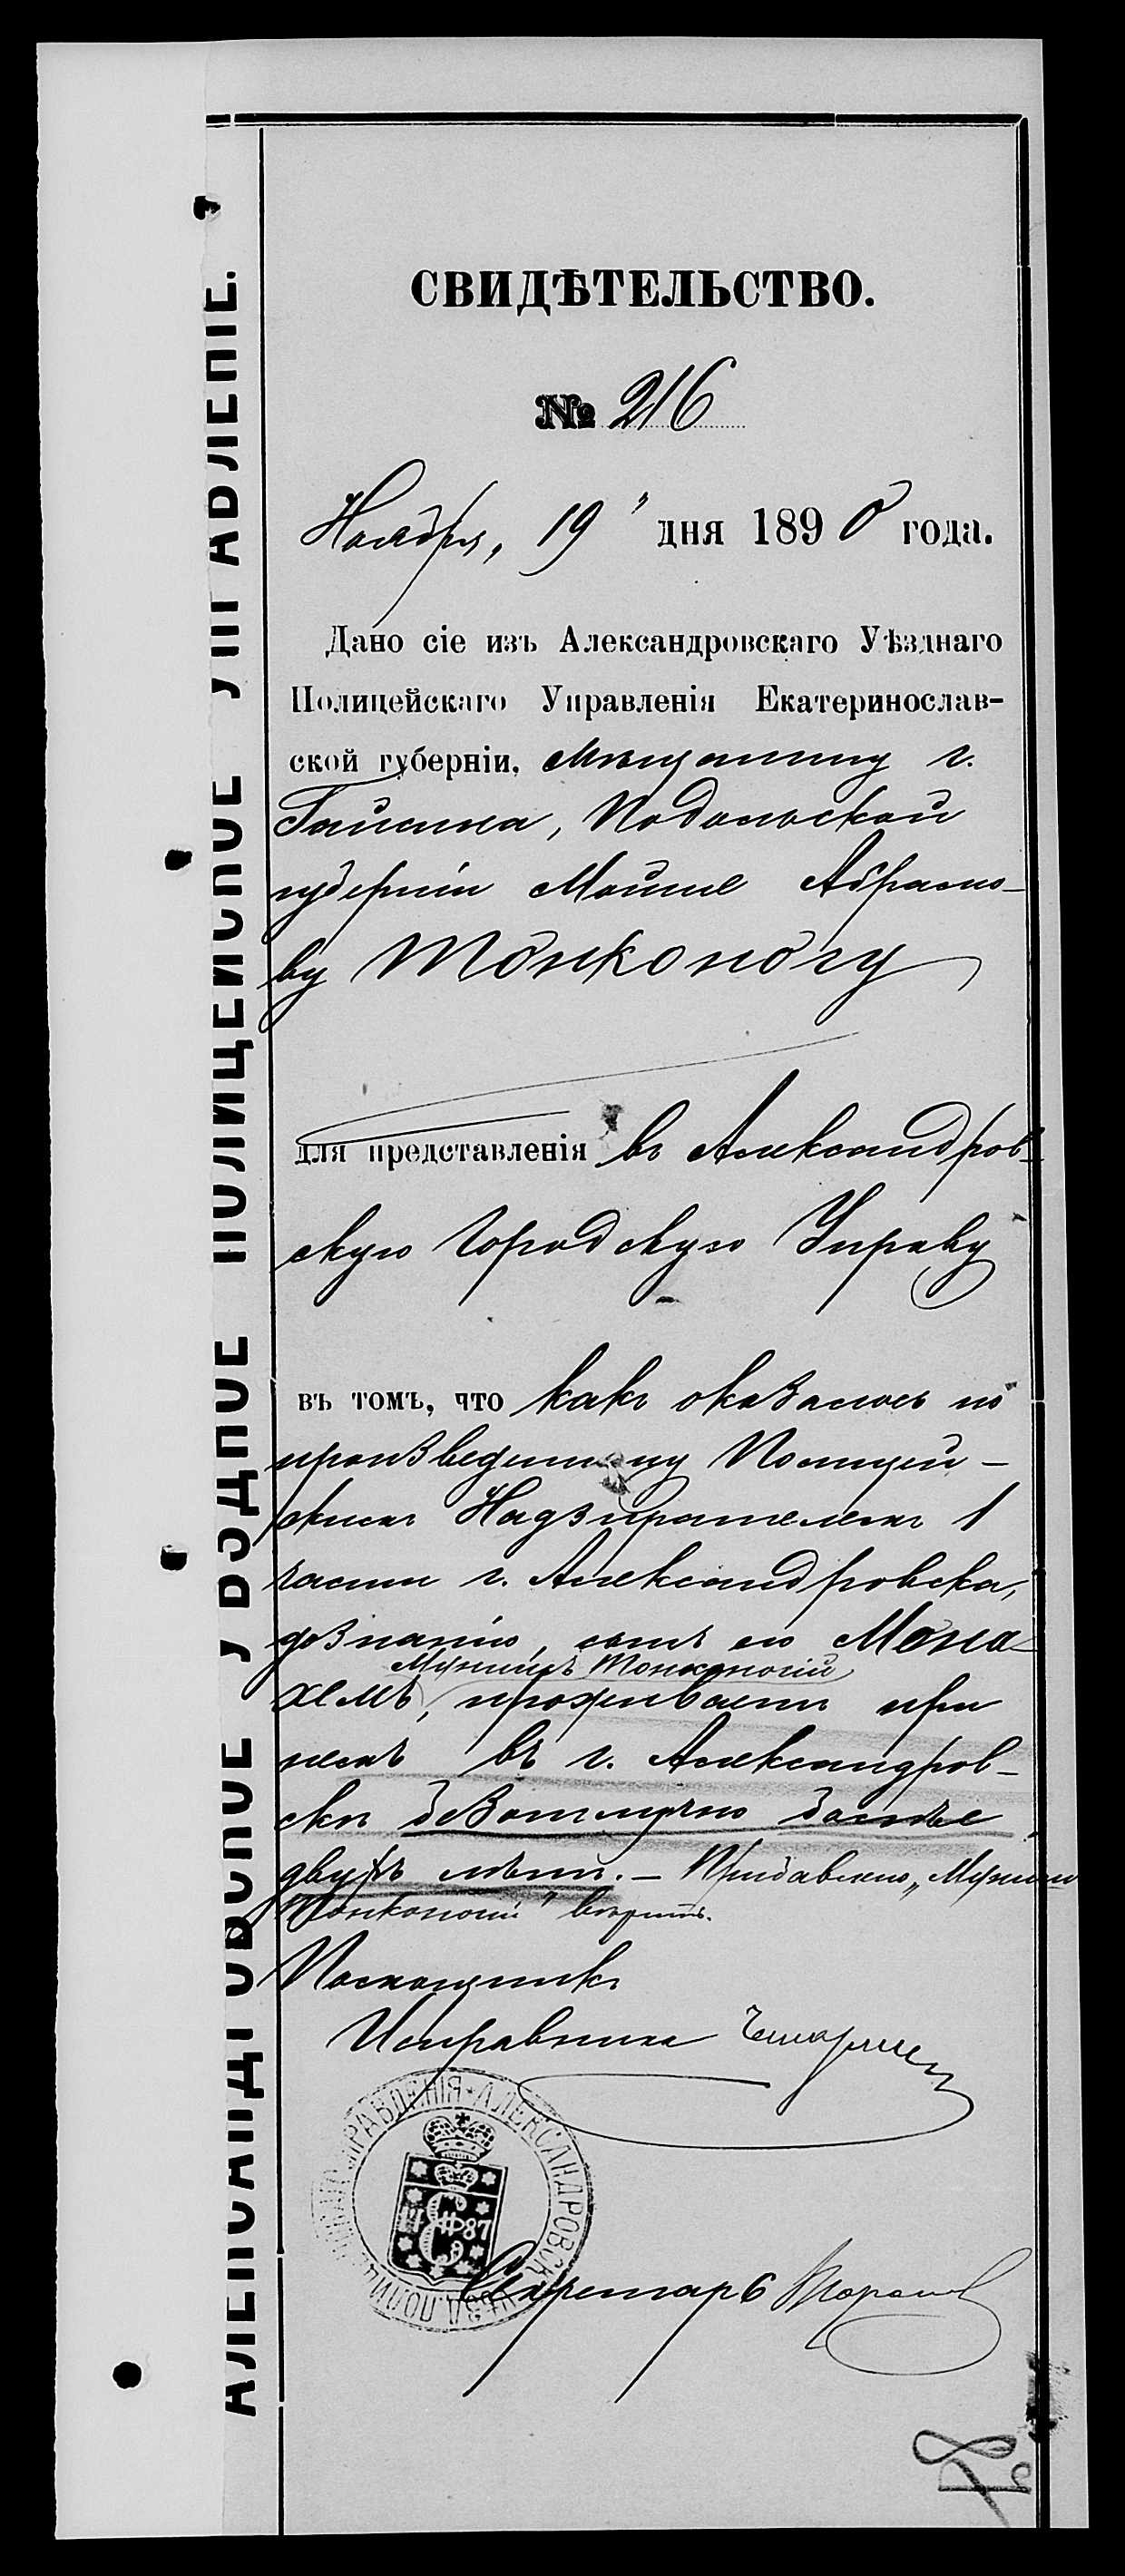 СВИДѢТЕЛЬСТВО.
№ 216
Ноября, 19 дня 1890 года.
Дано сіе изъ Александровскаго Уѣзднаго
Полицейскаго Управленія Екатеринослав-
ской губерніи, мѣщанину г.
Гайсина, Подольской
губерніи Мойше Абрамо-
ву Тонконогу
для представленія въ Александров-
скую Городскую Управу
въ томъ, что какъ оказалось по
произведенному Полицей-
скимъ Надзирателемъ 1
части г. Александровска,
дознанію, сынъ его Мона-
Тонконогій
хемъ, проживаетъ при
немъ въ г. Александров-
скѣ безотлучно болѣе
двухъ лѣтъ. — Прибавлено „
Тонконогій" вѣрить.
Помощникъ
Исправника
Секретарь
АЛЕКСАНДРОВСКОЕ УѢЗДНОЕ ПОЛИЦЕЙСКОЕ УПРАВЛЕНІЕ.